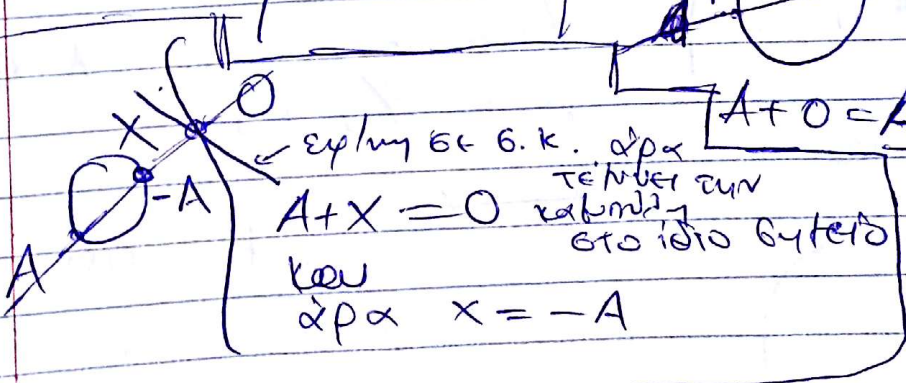 A
A + O = A
O
X
εφ/μη σε σ.κ. άρα
τέμνει την
-A
A + X = O
καμπύλη
στο ίδιο σημείο
A
και
άρα x = -A